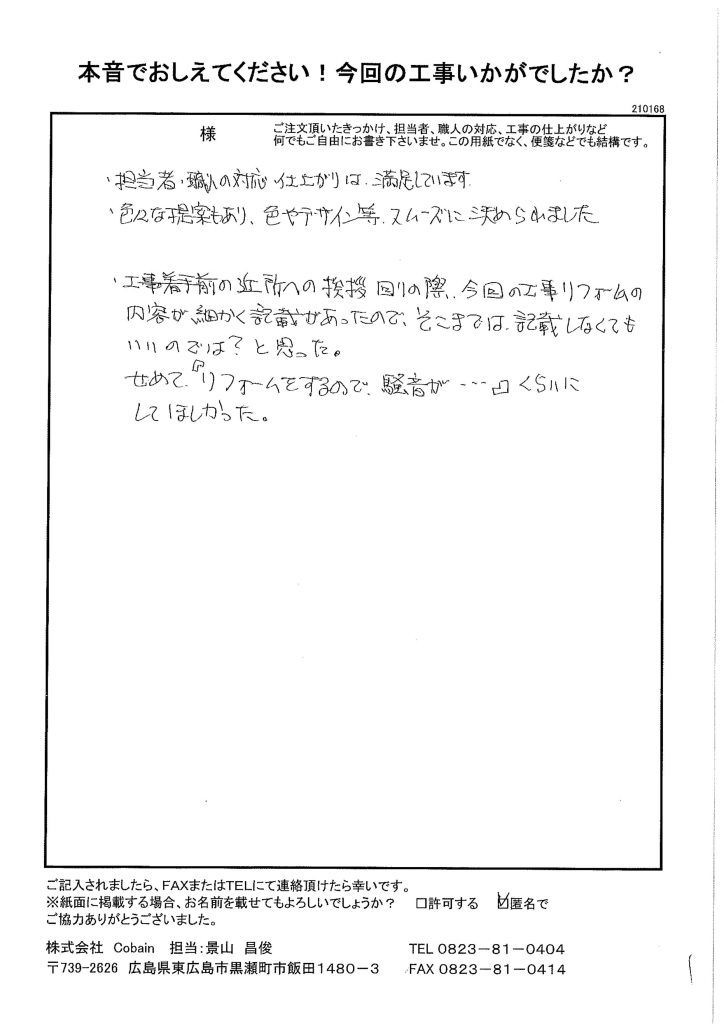 本音でおしえてください！今回の工事いかがでしたか？
210168
様
ご注文頂いたきっかけ、担当者、職人の対応、工事の仕上がりなど
何でもご自由にお書き下さいませ。この用紙でなく、便箋などでも結構です。
・担当者・職人の対応 仕上がりは、満足しています。
・色々な提案もあり、色やデザイン等、スムーズに決められました
・工事着手前の近所への挨拶回りの際、今回の工事リフォームの
内容が、細かく記載があったので、そこまでは、記載しなくても
いいのでは？と思った。
せめて、『リフォームをするので、騒音が、…』くらいに
してほしかった。
ご記入されましたら、FAXまたはTELにて連絡頂けたら幸いです。
※紙面に掲載する場合、お名前を載せてもよろしいでしょうか？ □許可する ☑匿名で
ご協力ありがとうございました。
株式会社 Cobain 担当：景山 昌俊 TEL 0823－81－0404
〒739-2626 広島県東広島市黒瀬町市飯田1480－3 FAX 0823－81－0414